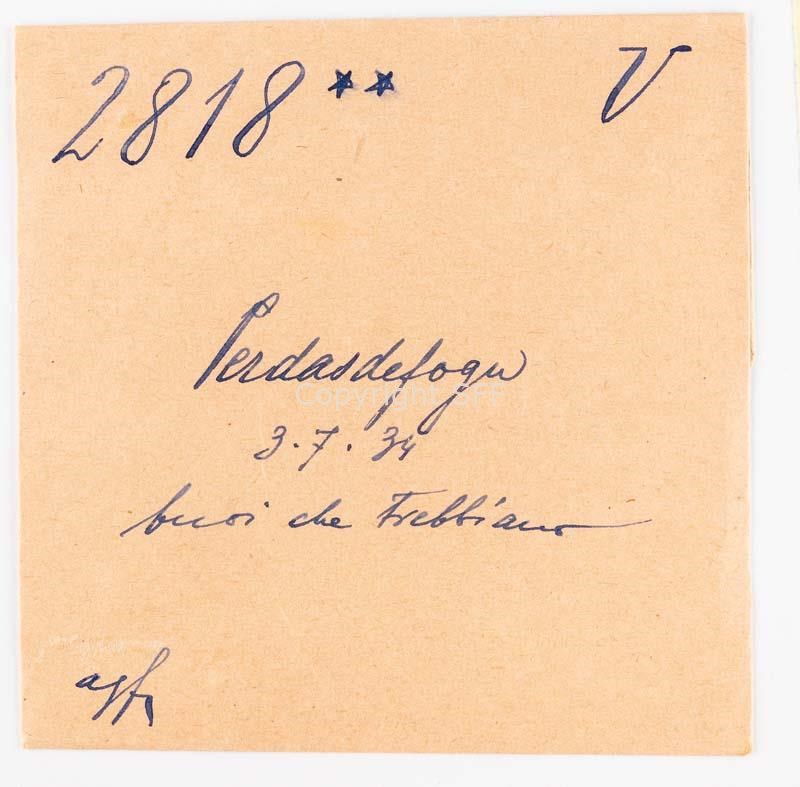 2818** V
Perdasdefogu
Copyright SFF
3.7.34
buoi che trebbiano
agfa